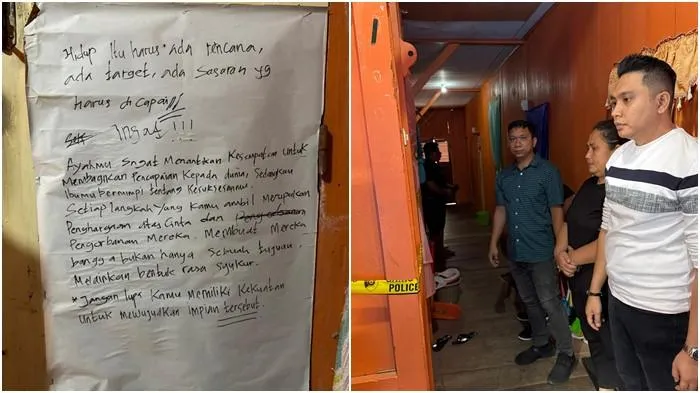 Hidup Itu harus Ada rencana,
ada target, ada Sasaran yg
harus di capai
Ingat !!!
Ayahmu Sngat Menantikan Kesempatan Untuk
Membagikan Pencapaian Kepada dunia, Sedangkan
Ibumu bermimpi tentang Kesuksesanmu.
Setiap langkah yang Kamu ambil Merupakan
Penghargaan Atas Cinta dan
Pengorbanan Mereka. Membuat Mereka
bangga bukan hanya Sebuah tujuan,
Melainkan bentuk rasa Syukur.
* Jangan lupa Kamu Memiliki Kekuatan
Untuk mewujudkan Impian tersebut.
POLICE